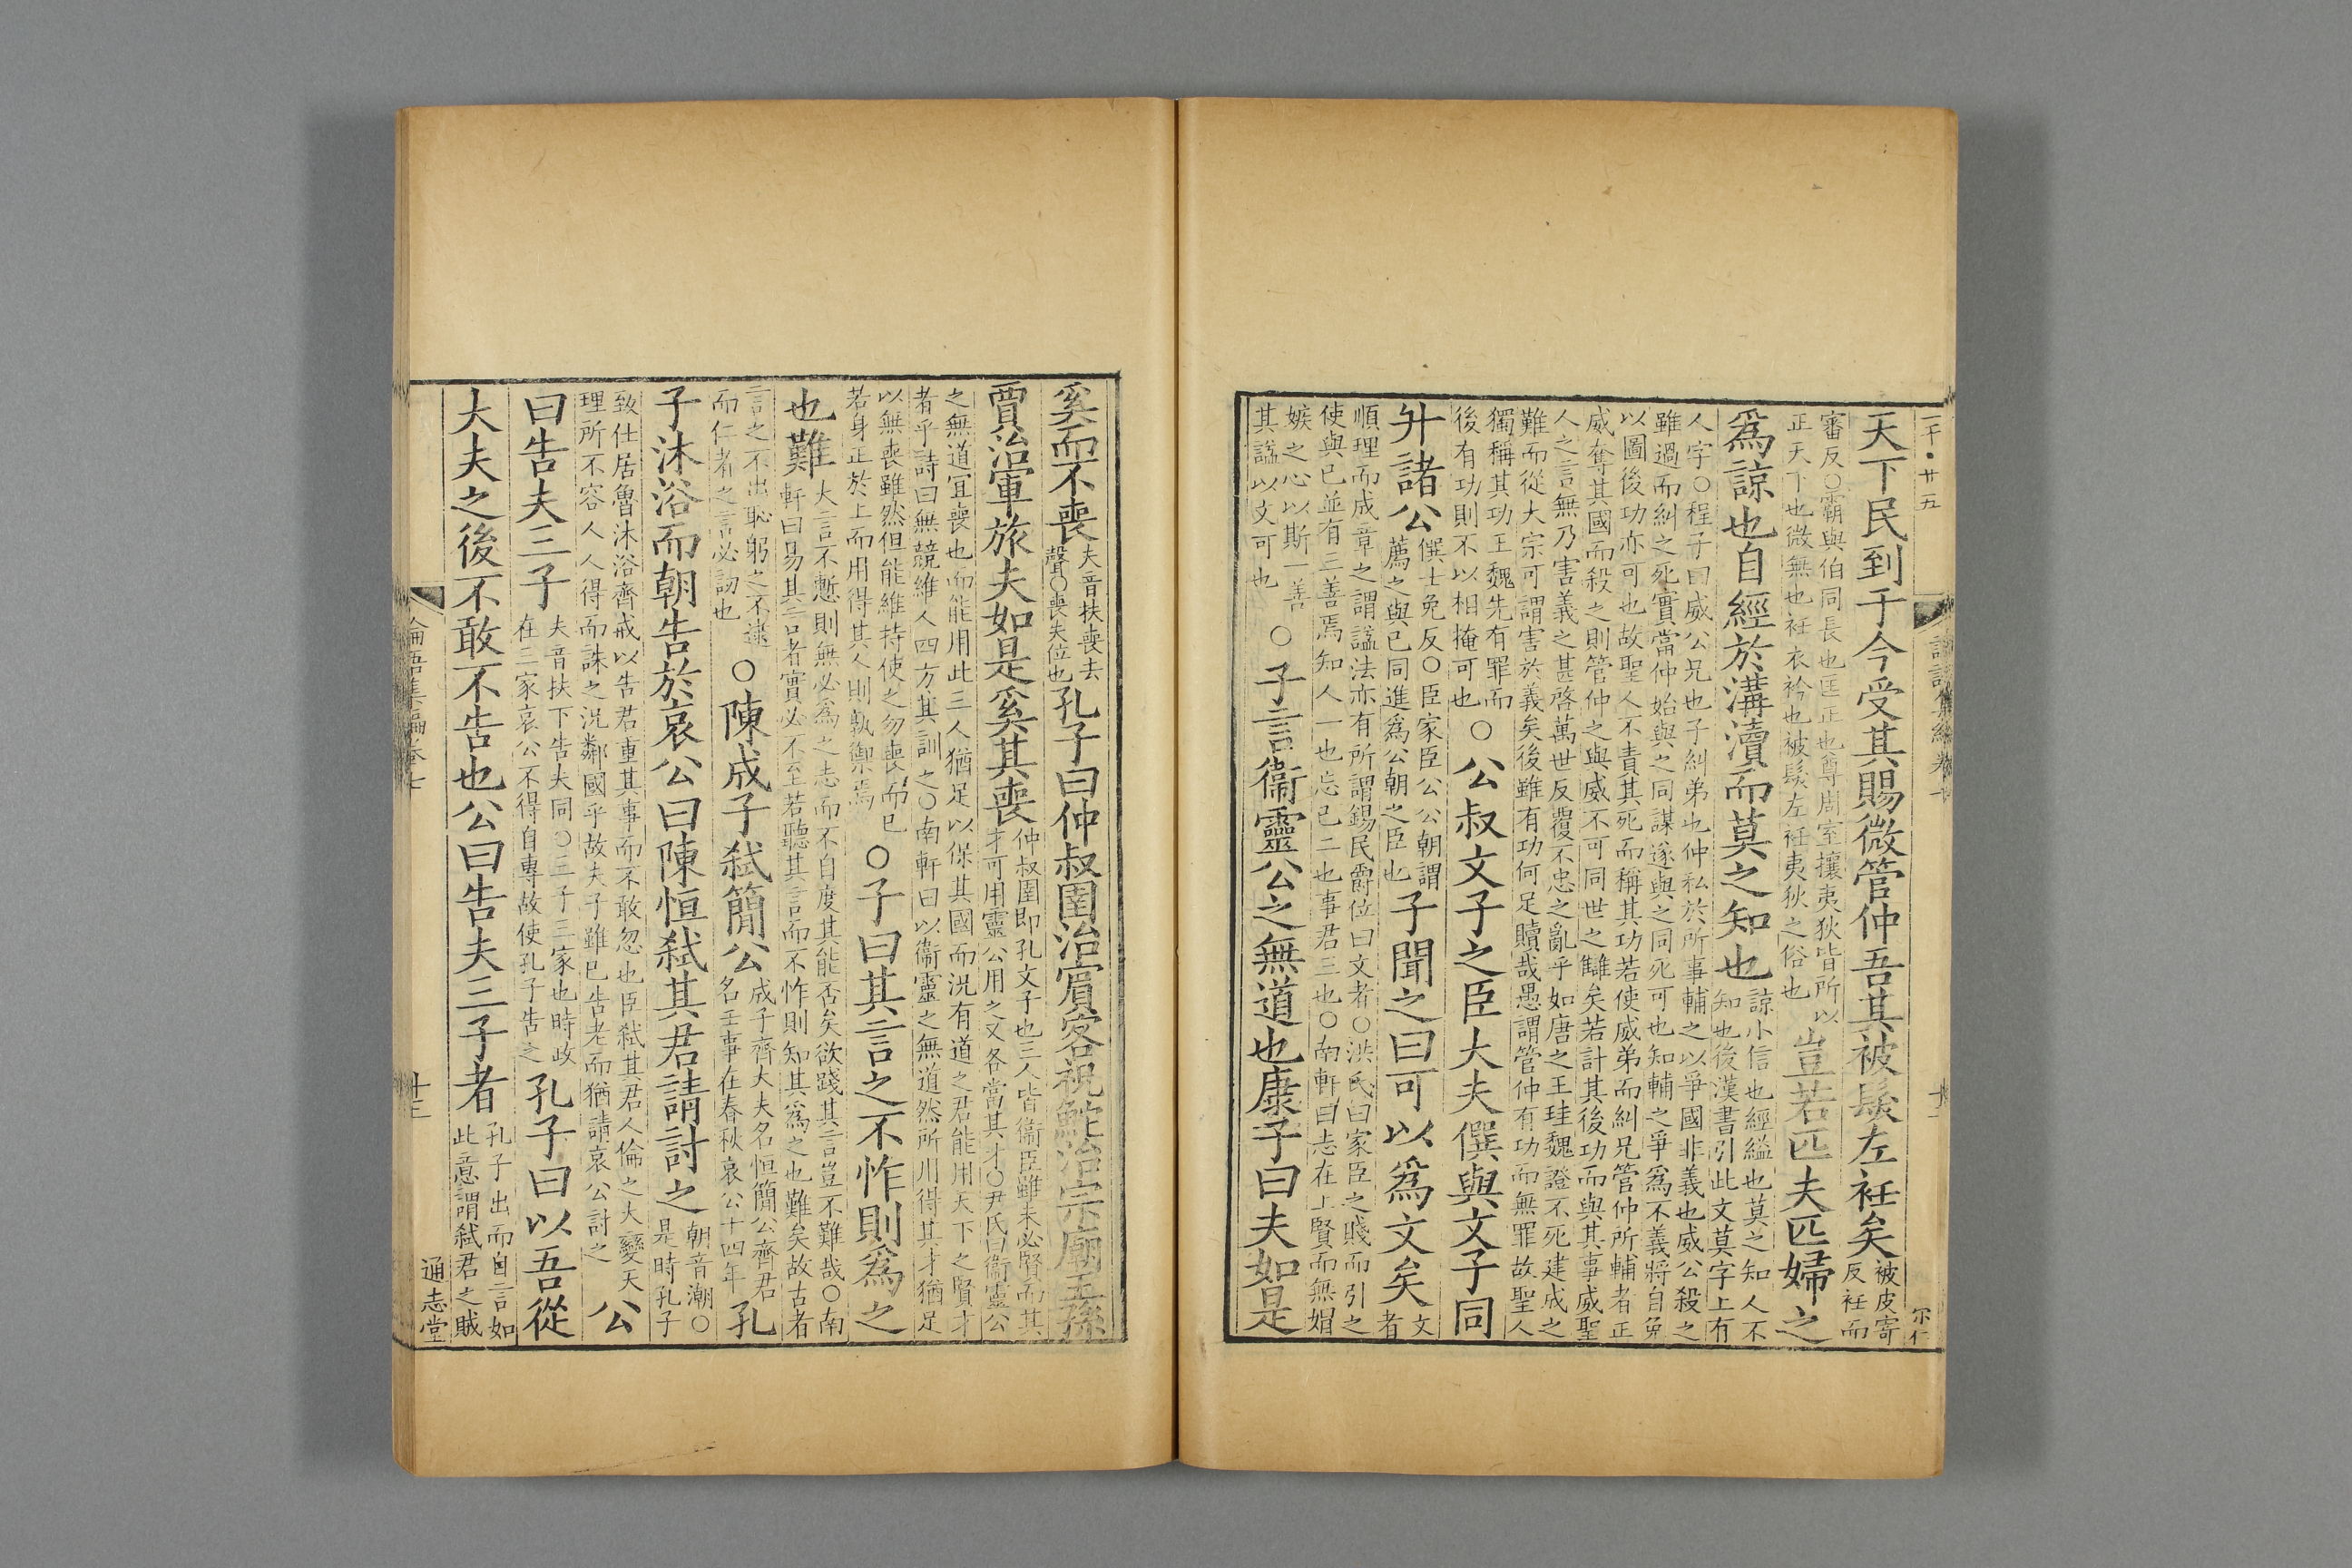 一千·廿五
宗仁
天下民到于今受其賜微管仲吾其被髮左衽矣被皮寄反衽而
審反○霸與伯同長也匡正也尊周室攘夷狄皆所以
正天下也微無也衽衣衿也被髮左衽夷狄之俗也
豈若匹夫匹婦之
爲諒也自經於溝瀆而莫之知也
諒小信也經縊也莫之知人不
知也後漢書引此文莫字上有
人字○程子曰威公兄也子糾弟也仲私於所事輔之以爭國非義也威公殺之
雖過而糾之死實當仲始與之同謀遂與之同死可也知輔之爭爲不義將自免
以圖後功亦可也故聖人不責其死而稱其功若使威弟而糾兄管仲所輔者正
威奪其國而殺之則管仲之與威不可同世之讎矣若計其後功而與其事威聖
人之言無乃害義之甚啓萬世反覆不忠之亂乎如唐之王珪魏證不死建成之
難而從太宗可謂害於義矣後雖有功何足贖哉愚謂管仲有功而無罪故聖人
獨稱其功王魏先有罪而
後有功則不以相掩可也
○公叔文子之臣大夫僎與文子同
升諸公
僎士免反○臣家臣公公朝謂
薦之與己同進爲公朝之臣也
子聞之曰可以爲文矣
文
者
順理而成章之謂謚法亦有所謂錫民爵位曰文者○洪氏曰家臣之賤而引之
使與己並有三善焉知人一也忘己二也事君三也○南軒曰志在上賢而無媢
嫉之心以斯一善
其謚以文可也
○子言衞靈公之無道也康子曰夫如是
奚而不喪
夫音扶喪去
聲○喪失位也
孔子曰仲叔圉治賓客祝鮀治宗廟王孫
賈治軍旅夫如是奚其喪
仲叔圉即孔文子也三人皆衞臣雖未必賢而其
才可用靈公用之又各當其才○尹氏曰衞靈公
之無道宜喪也而能用此三人猶足以保其國而況有道之君能用天下之賢才
者乎詩曰無競維人四方其訓之○南軒曰以衞靈之無道然所用得其才猶足
以無喪雖然但能維持使之勿喪而已
若身正於上而用得其人則孰禦焉
○子曰其言之不怍則爲之
也難
大言不慙則無必爲之志而不自度其能否矣欲踐其言豈不難哉○南
軒曰易其言者實必不至若聽其言而不怍則知其爲之也難矣故古者
言之不出恥躬之不逮
而仁者之言必訒也
○陳成子弒簡公
成子齊大夫名恒簡公齊君
名壬事在春秋哀公十四年
孔
子沐浴而朝告於哀公曰陳恒弒其君請討之
朝音潮○
是時孔子
致仕居魯沐浴齊戒以告君重其事而不敢忽也臣弒其君人倫之大變天
理所不容人人得而誅之況鄰國乎故夫子雖已告老而猶請哀公討之
公
曰告夫三子
夫音扶下告夫同○三子三家也時政
在三家哀公不得自專故使孔子告之
孔子曰以吾從
大夫之後不敢不告也公曰告夫三子者
孔子出而自言如
此意謂弒君之賊
論語集編卷七
十三
通志堂